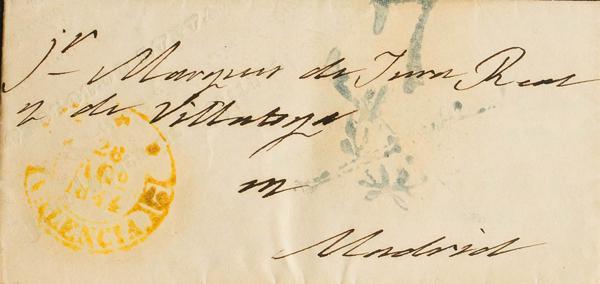 Sr Marques de Jura Real
y de Villatoya
en
Madrid
7
28
AGO
1854
VALENCIA